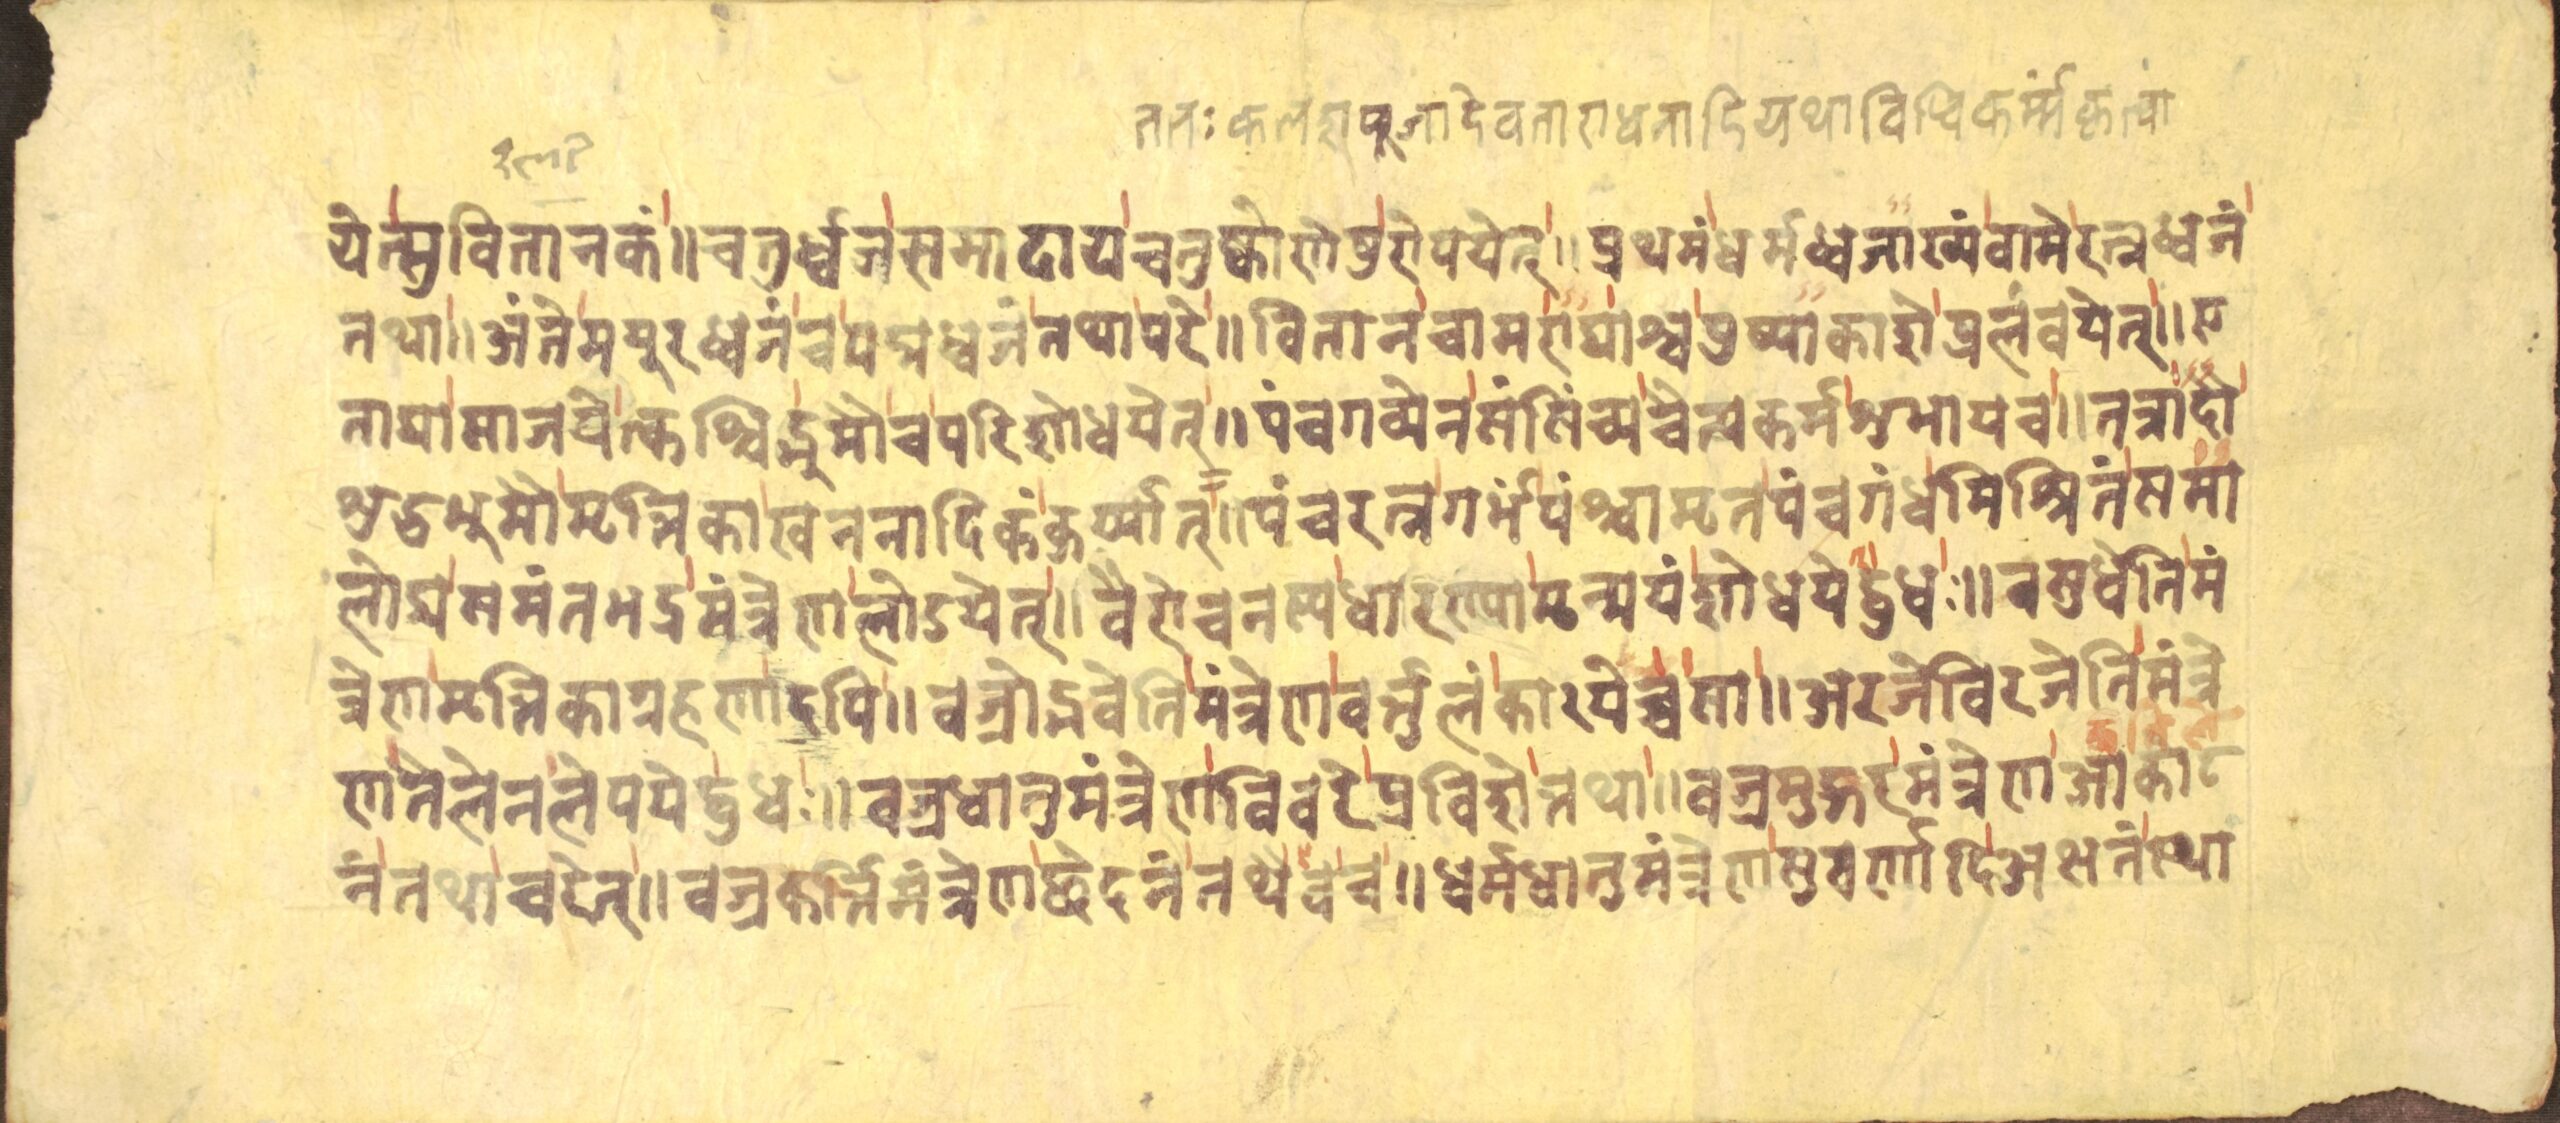 ततः कलशपूजादेवताराधनादियथाविधिकर्म्मकृत्वा
येत्सुवितानकं॥चतुर्ध्वजसमादायचतुष्कोणेषुरोपयेत्॥प्रथमंधर्मध्वजाख्यंवामेरत्नध्वजं
तथा॥अंतेमयूरध्वजंचपद्मध्वजंतथापरे॥वितानंचामराद्याश्चपुष्पाकाशेप्रलंवयेत्॥ए
तायासाजयेत्कश्चिद्भूमौचपरिशोधयेत्॥पंचगव्येनसंसिंच्यचैत्यकर्मशुभायच॥तत्रादौ
शुद्धभूमौमृत्तिकाखननादिकंकुर्य्यात्॥पंचरत्नगर्भंपंञ्चामृतपंचगंधमिश्रितंसमा
लोड्यसमंतभद्रमंत्रेणालोडयेत्॥वैरोचनस्यधारण्यामृन्मयंशोधयेद्बुधः॥वसुधेतिमं
त्रेणमृत्तिकाग्रहणादपि॥वज्रोद्भवेतिमंत्रेणवर्त्तुलंकारयेच्चसा॥अरजेविरजेतिमंत्रे
णतैलेनलेपयेद्बुधः॥वज्रधातुमंत्रेणविवरेप्रविशेत्तथा॥वज्रमुद्गरमंत्रेणआकोट
नंतथाचरेत्॥वज्रकर्त्तिमंत्रेणछेदनंतथैवच॥धर्मधातुमंत्रेणसुवर्णादिअक्षतंस्था